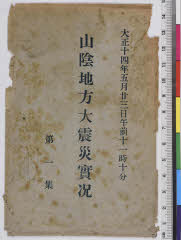 大正十四年五月廿三日午前十一時十分
山陰地方大震災實況
第一集